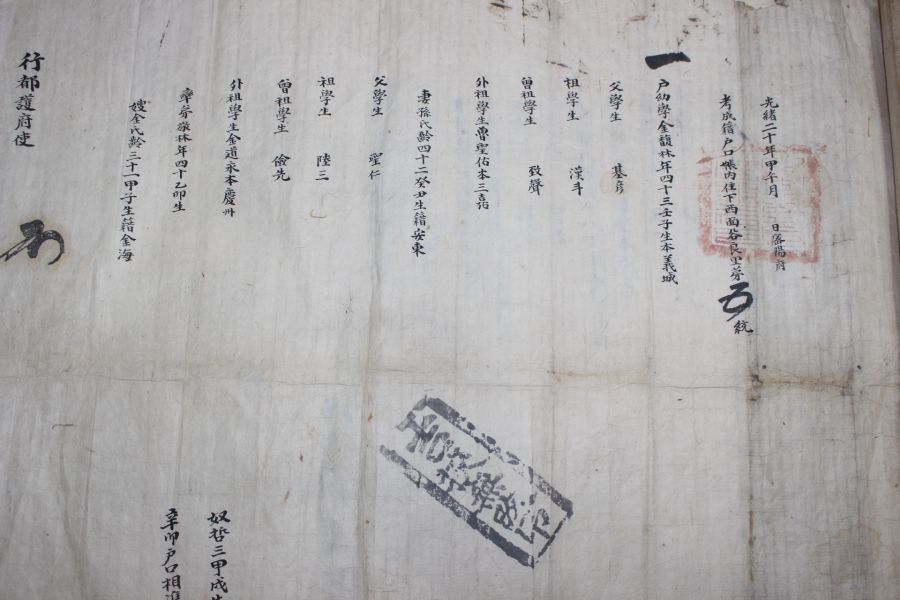 光緖二十年甲午月 日密陽府
考成籍戶口帳內住下西面 良里第五統
一戶幼學金馥林年四十三壬子生本義城
父學生 基彦
祖學生 漢斗
曾祖學生 致聲
外祖學生曺聖佑本三嘉
妻孫氏齡四十二癸丑生籍安東
父學生 聖仁
祖學生 陸三
曾祖學生 儉先
外祖學生金道永本慶州
率弟 林年四十乙卯生
嫂金氏齡三十一甲子生籍金海
奴哲三甲戌生
辛卯戶口相準
行都護府使